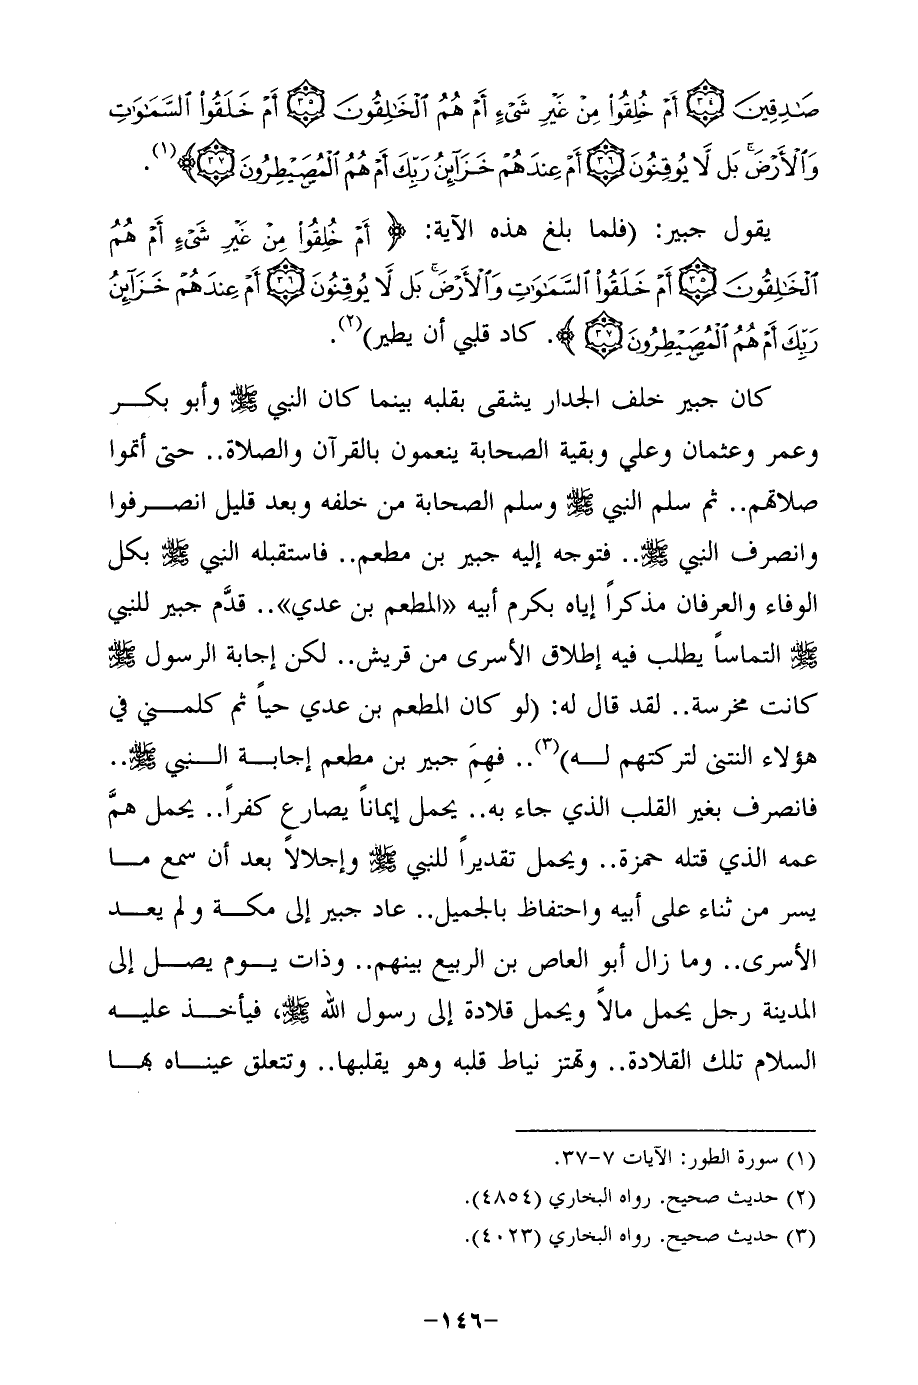 صَـٰدِقِينَ ۝٣٤ أَمْ خُلِقُوا۟ مِنْ غَيْرِ شَىْءٍ أَمْ هُمُ ٱلْخَـٰلِقُونَ ۝٣٥ أَمْ خَلَقُوا۟ ٱلسَّمَـٰوَٰتِ
وَٱلْأَرْضَ ۚ بَل لَّا يُوقِنُونَ ۝٣٦ أَمْ عِندَهُمْ خَزَآئِنُ رَبِّكَ أَمْ هُمُ ٱلْمُصَۣيْطِرُونَ ۝٣٧﴾(١).
يقول جبير: (فلما بلغ هذه الآية: ﴿ أَمْ خُلِقُوا۟ مِنْ غَيْرِ شَىْءٍ أَمْ هُمُ
ٱلْخَـٰلِقُونَ ۝٣٥ أَمْ خَلَقُوا۟ ٱلسَّمَـٰوَٰتِ وَٱلْأَرْضَ ۚ بَل لَّا يُوقِنُونَ ۝٣٦ أَمْ عِندَهُمْ خَزَآئِنُ
رَبِّكَ أَمْ هُمُ ٱلْمُصَۣيْطِرُونَ ۝٣٧ ﴾. كاد قلبي أن يطير)(٢).
كان جبير خلف الجدار يشقى بقلبه بينما كان النبي ﷺ وأبو بكـــر
وعمر وعثمان وعلي وبقية الصحابة ينعمون بالقرآن والصلاة.. حتى أتموا
صلاتهم.. ثم سلم النبي ﷺ وسلم الصحابة من خلفه وبعد قليل انصـــرفوا
وانصرف النبي ﷺ.. فتوجه إليه جبير بن مطعم.. فاستقبله النبي ﷺ بكل
الوفاء والعرفان مذكراً إياه بكرم أبيه «المطعم بن عدي».. قدَّم جبير للنبي
ﷺ التماساً يطلب فيه إطلاق الأسرى من قريش.. لكن إجابة الرسول ﷺ
كانت مخرسة.. لقد قال له: (لو كان المطعم بن عدي حياً ثم كلمـــني في
هؤلاء النتنى لتركتهم لـــه)(٣).. فهِمَ جبير بن مطعم إجابـــة الـــنبي ﷺ..
فانصرف بغير القلب الذي جاء به.. يحمل إيماناً يصارع كفراً.. يحمل همَّ
عمه الذي قتله حمزة.. ويحمل تقديراً للنبي ﷺ وإجلالاً بعد أن سمع مـــا
يسر من ثناء على أبيه واحتفاظ بالجميل.. عاد جبير إلى مكـــة ولم يعـــد
الأسرى.. وما زال أبو العاص بن الربيع بينهم.. وذات يـــوم يصـــل إلى
المدينة رجل يحمل مالاً ويحمل قلادة إلى رسول الله ﷺ، فيأخـــذ عليـــه
السلام تلك القلادة.. وتهتز نياط قلبه وهو يقلبها.. وتتعلق عينـــاه بهـــا
(١) سورة الطور: الآيات ٧-٣٧.
(٢) حديث صحيح. رواه البخاري (٤٨٥٤).
(٣) حديث صحيح. رواه البخاري (٤٠٢٣).
-١٤٦-